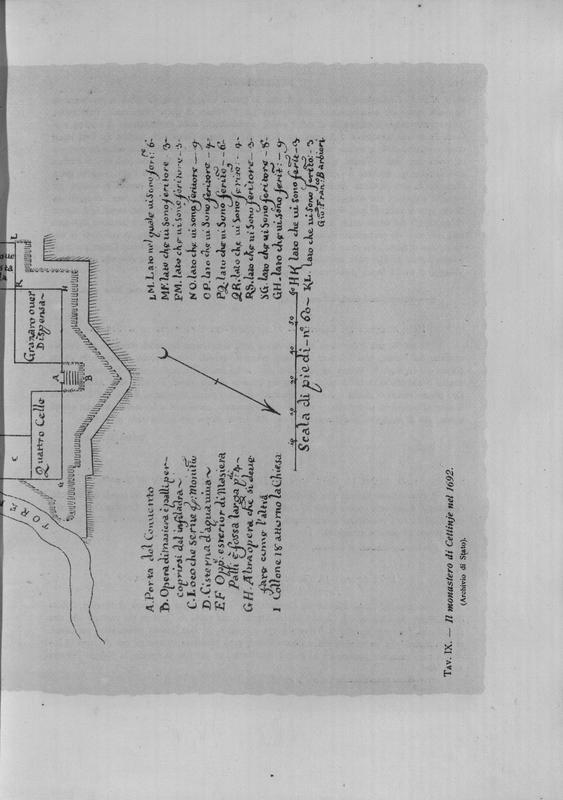 L
R
H
Granaro ouer
Dispensa
A
B
C
Quattro Celle
G
TORE
A. Porta del Conuento
B. Opera di masiera è palli per
coprirsi dal infiladra
C. Loco che serue
D. Cisterna d'aqua uiua
EF Opp: esterior di Masiera
Palli è fossa larga pi: 4
GH. Altra opera che si deue
fare come l'altra
I Collone 18 attorno la Chiesa
LM. Lato nel quale ui sono feri: 6
MF. lato che ui sono feritore 3
FM. lato che ui sono feritore 3
NO. lato che ui sono feritore 9
OP. lato che ui sono feritore 4
PQ. lato che ui sono feritore 6
QR. lato che ui sono ferito: 4
RS. lato che ui sono feritore 3
SG. lato che ui sono feritore 8
GH. lato che ui sono ferit: 9
HK lato che ui sono ferit: 3
KL. lato che ui sono ferito: 3
Gio: Fran.co Barbieri
10 20 30 40 50 60
Scala di piedi n.o 60
TAV. IX. — Il monastero di Cettinje nel 1692.
(Archivio di Stato).